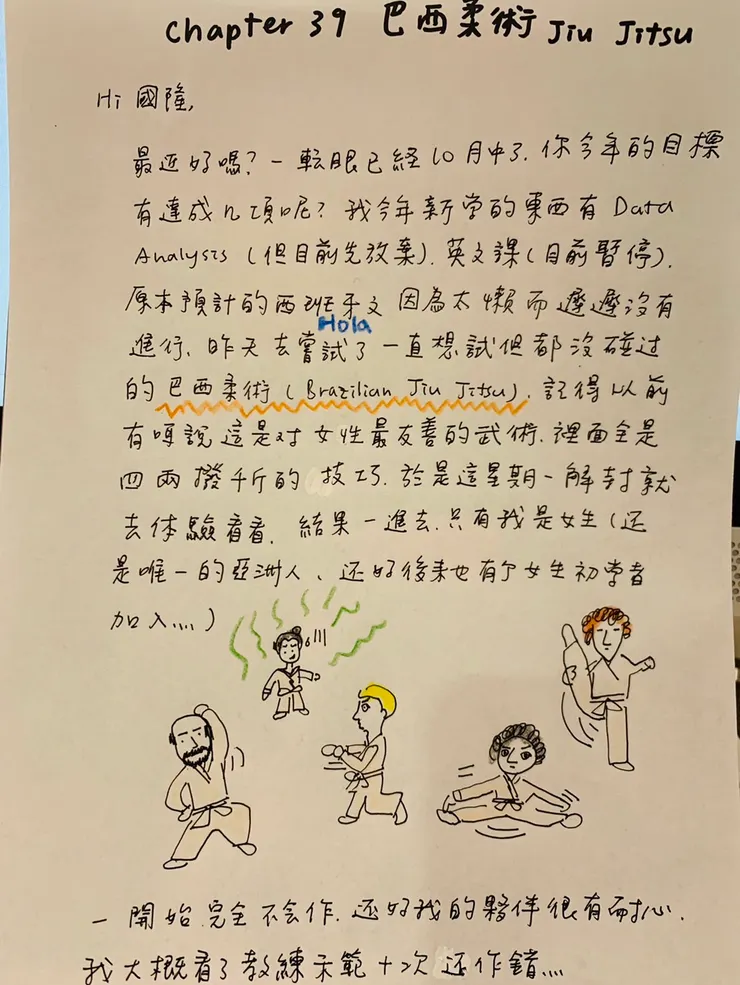 Chapter 39 巴西柔術 Jiu Jitsu
Hi 國隆,
最近好嗎? 一転眼已経10月中了. 你今年的目標
有達成几項呢? 我今年新学的東西有 Data
Analysis (但目前先放棄). 英文課(目前暫停).
原本預計的西班牙文 因為太懶而遲遲沒有
Hola
進行. 昨天去嘗試了一直想試但都沒碰过
的 巴西柔術 (Brazilian Jiu Jitsu). 記得以前
有呀說 這是対女性最友善的武術. 裡面全是
四兩撥千斤的技巧. 於是這星期一解封就
去体驗看看. 結果一進去. 只有我是女生(还
是唯一的亞洲人、还好後来也有个女生初学者
加入....)
一開始 完全 不会作. 还好我的夥伴很有耐心.
我大概看了教練示範十次 还作錯....